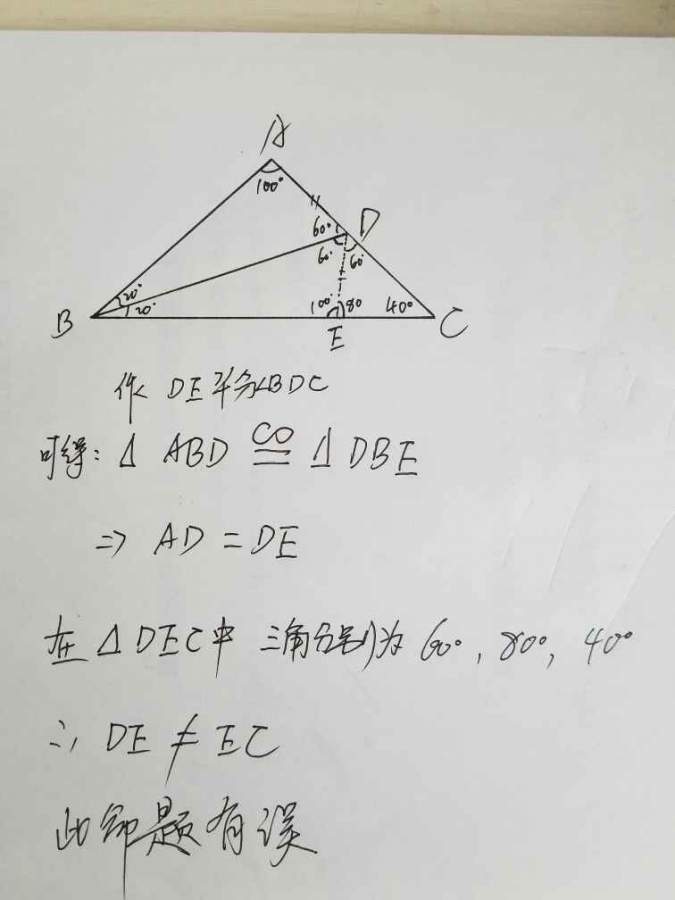 A
100°
60°
D
60°
60°
20°
20°
100°
80
40°
B
E
C
作 DE平分∠BDC
可得: △ ABD ≌ △ DBE
⇒ AD = DE
在 △DEC中 三角分别为 60°, 80°, 40°
∴ DE ≠ EC
此命题有误